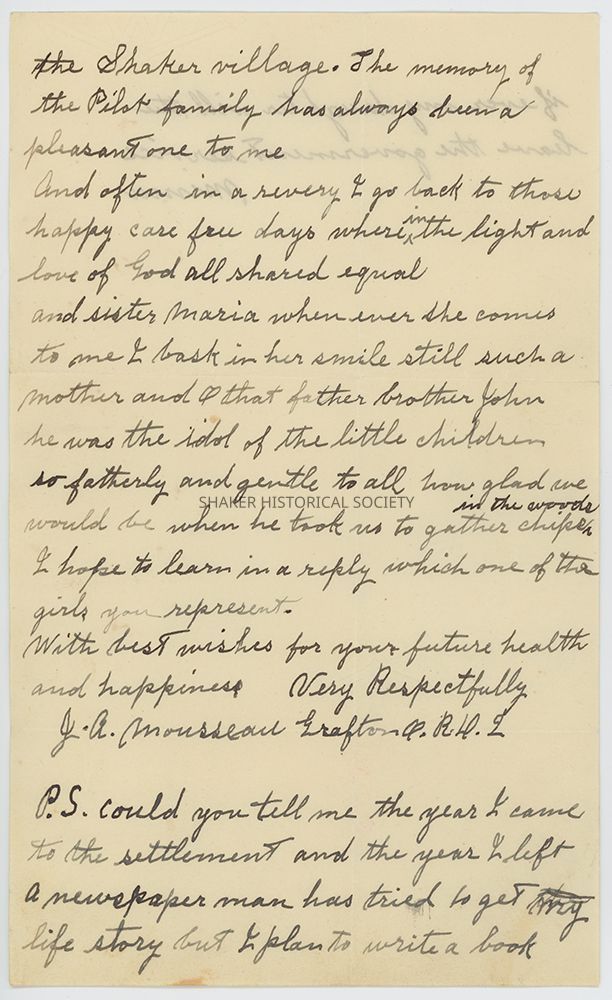 the Shaker village. The memory of
the Pilot family has always been a
pleasant one to me
And often in a revery I go back to those
happy care free days where in the light and
love of God all shared equal
and sister Maria when ever she comes
to me I bask in her smile still such a
mother and O that father brother John
he was the idol of the little children
so fatherly and gentle to all how glad we
SHAKER HISTORICAL SOCIETY
would be when he took us to gather chips in the woods
I hope to learn in a reply which one of the
girls you represent.
With best wishes for your future health
and happiness Very Respectfully
J. A. Mousseau Grafton O. R.D. 2
P.S. could you tell me the year I came
to the settlement and the year I left
A newspaper man has tried to get my
life story but I plan to write a book